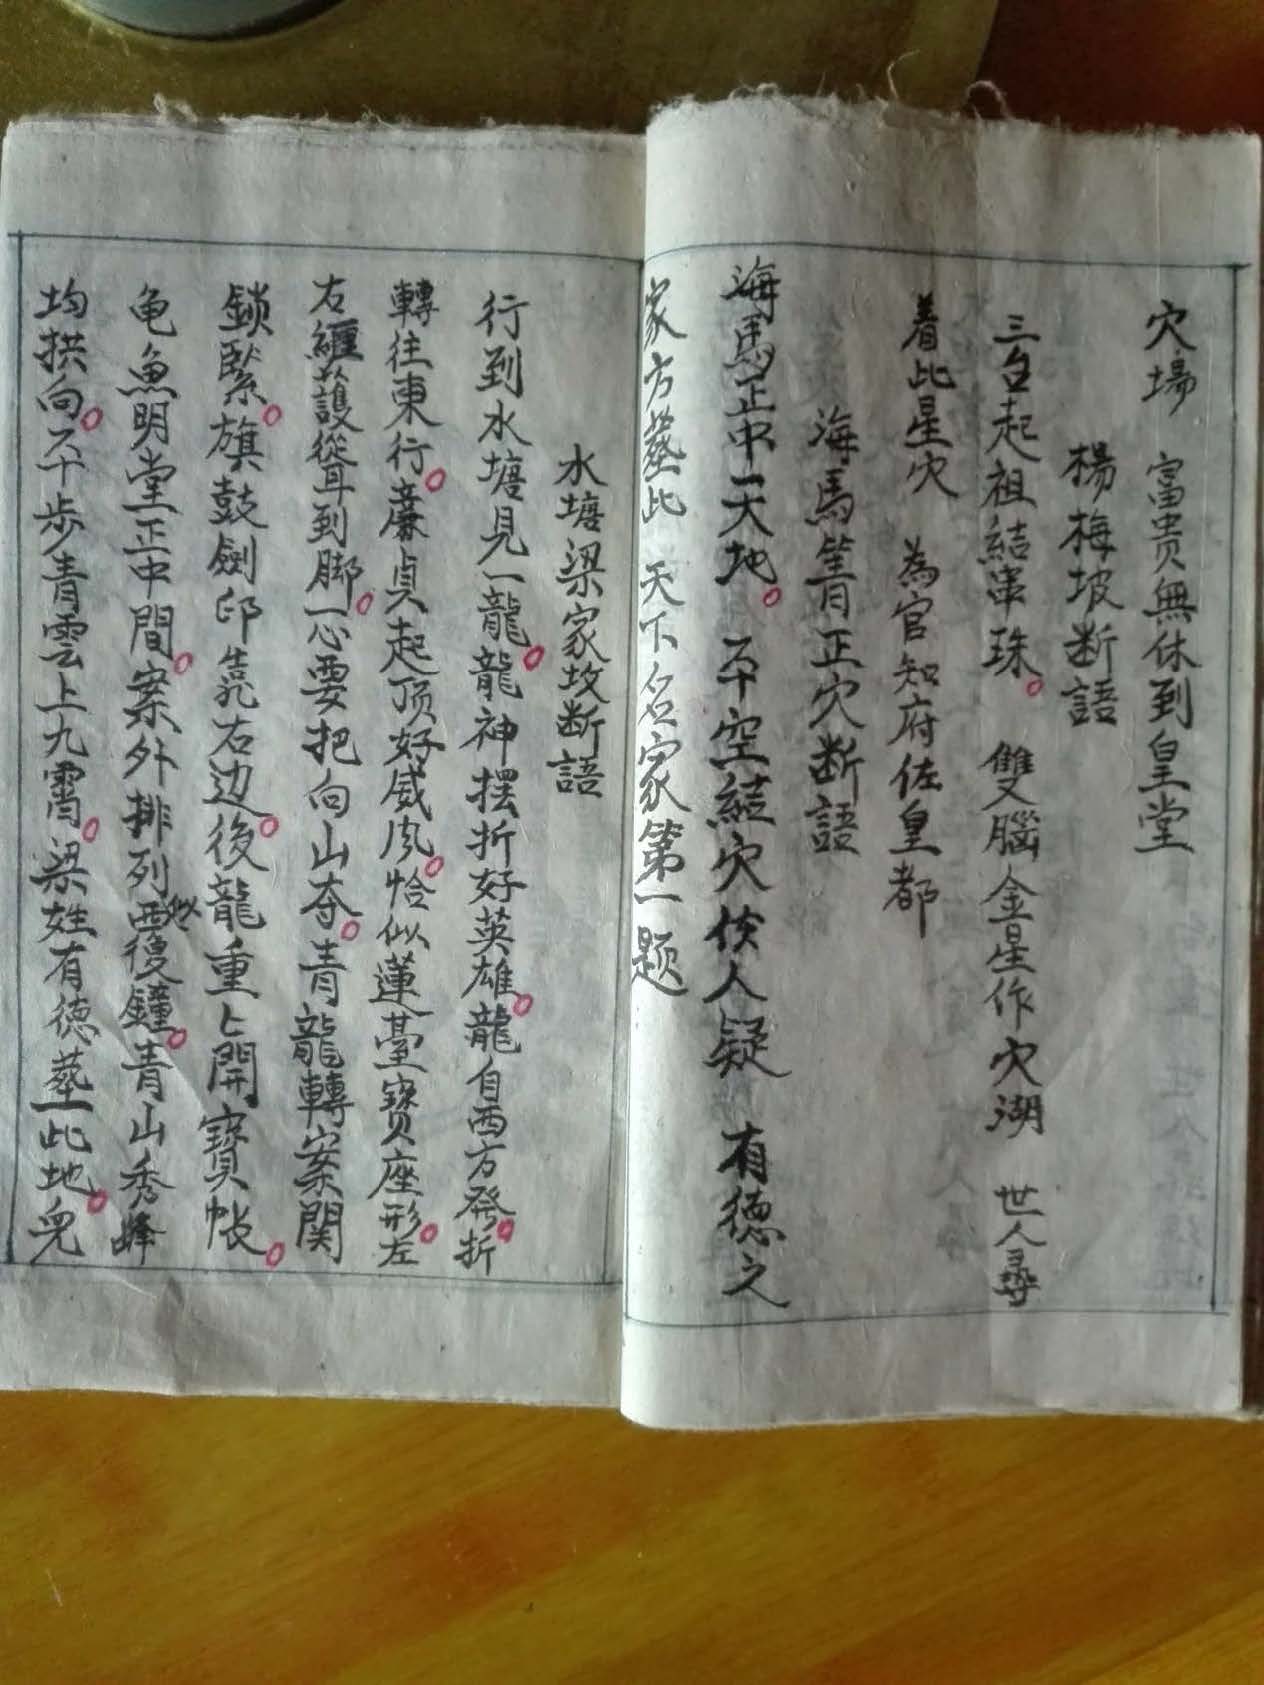 穴場　富贵無休到皇堂
楊梅坡断語
三台起祖結串珠。　雙腦金星作穴湖　世人尋
着此星穴　為官知府佐皇都
海馬笥正穴断語
海馬正中一天地。　平空結穴俟人疑　有德之
家方葬此　天下名家第一题
水塘梁家坟断語
行到水塘見一龍。龍神摆折好英雄。龍自西方發。折
轉往東行。廉貞起顶好威风。恰似蓮臺寶座形。左
右纏護從耳到脚。一心要把向山夺。青龍轉案関
鎖緊。旗鼓劍印靠右边。後龍重上開寶帐。
龟魚明堂正中間。案外排列西似覆鐘。青山秀峰
均拱向。平步青雲上九霄。梁姓有德葬此地。兒